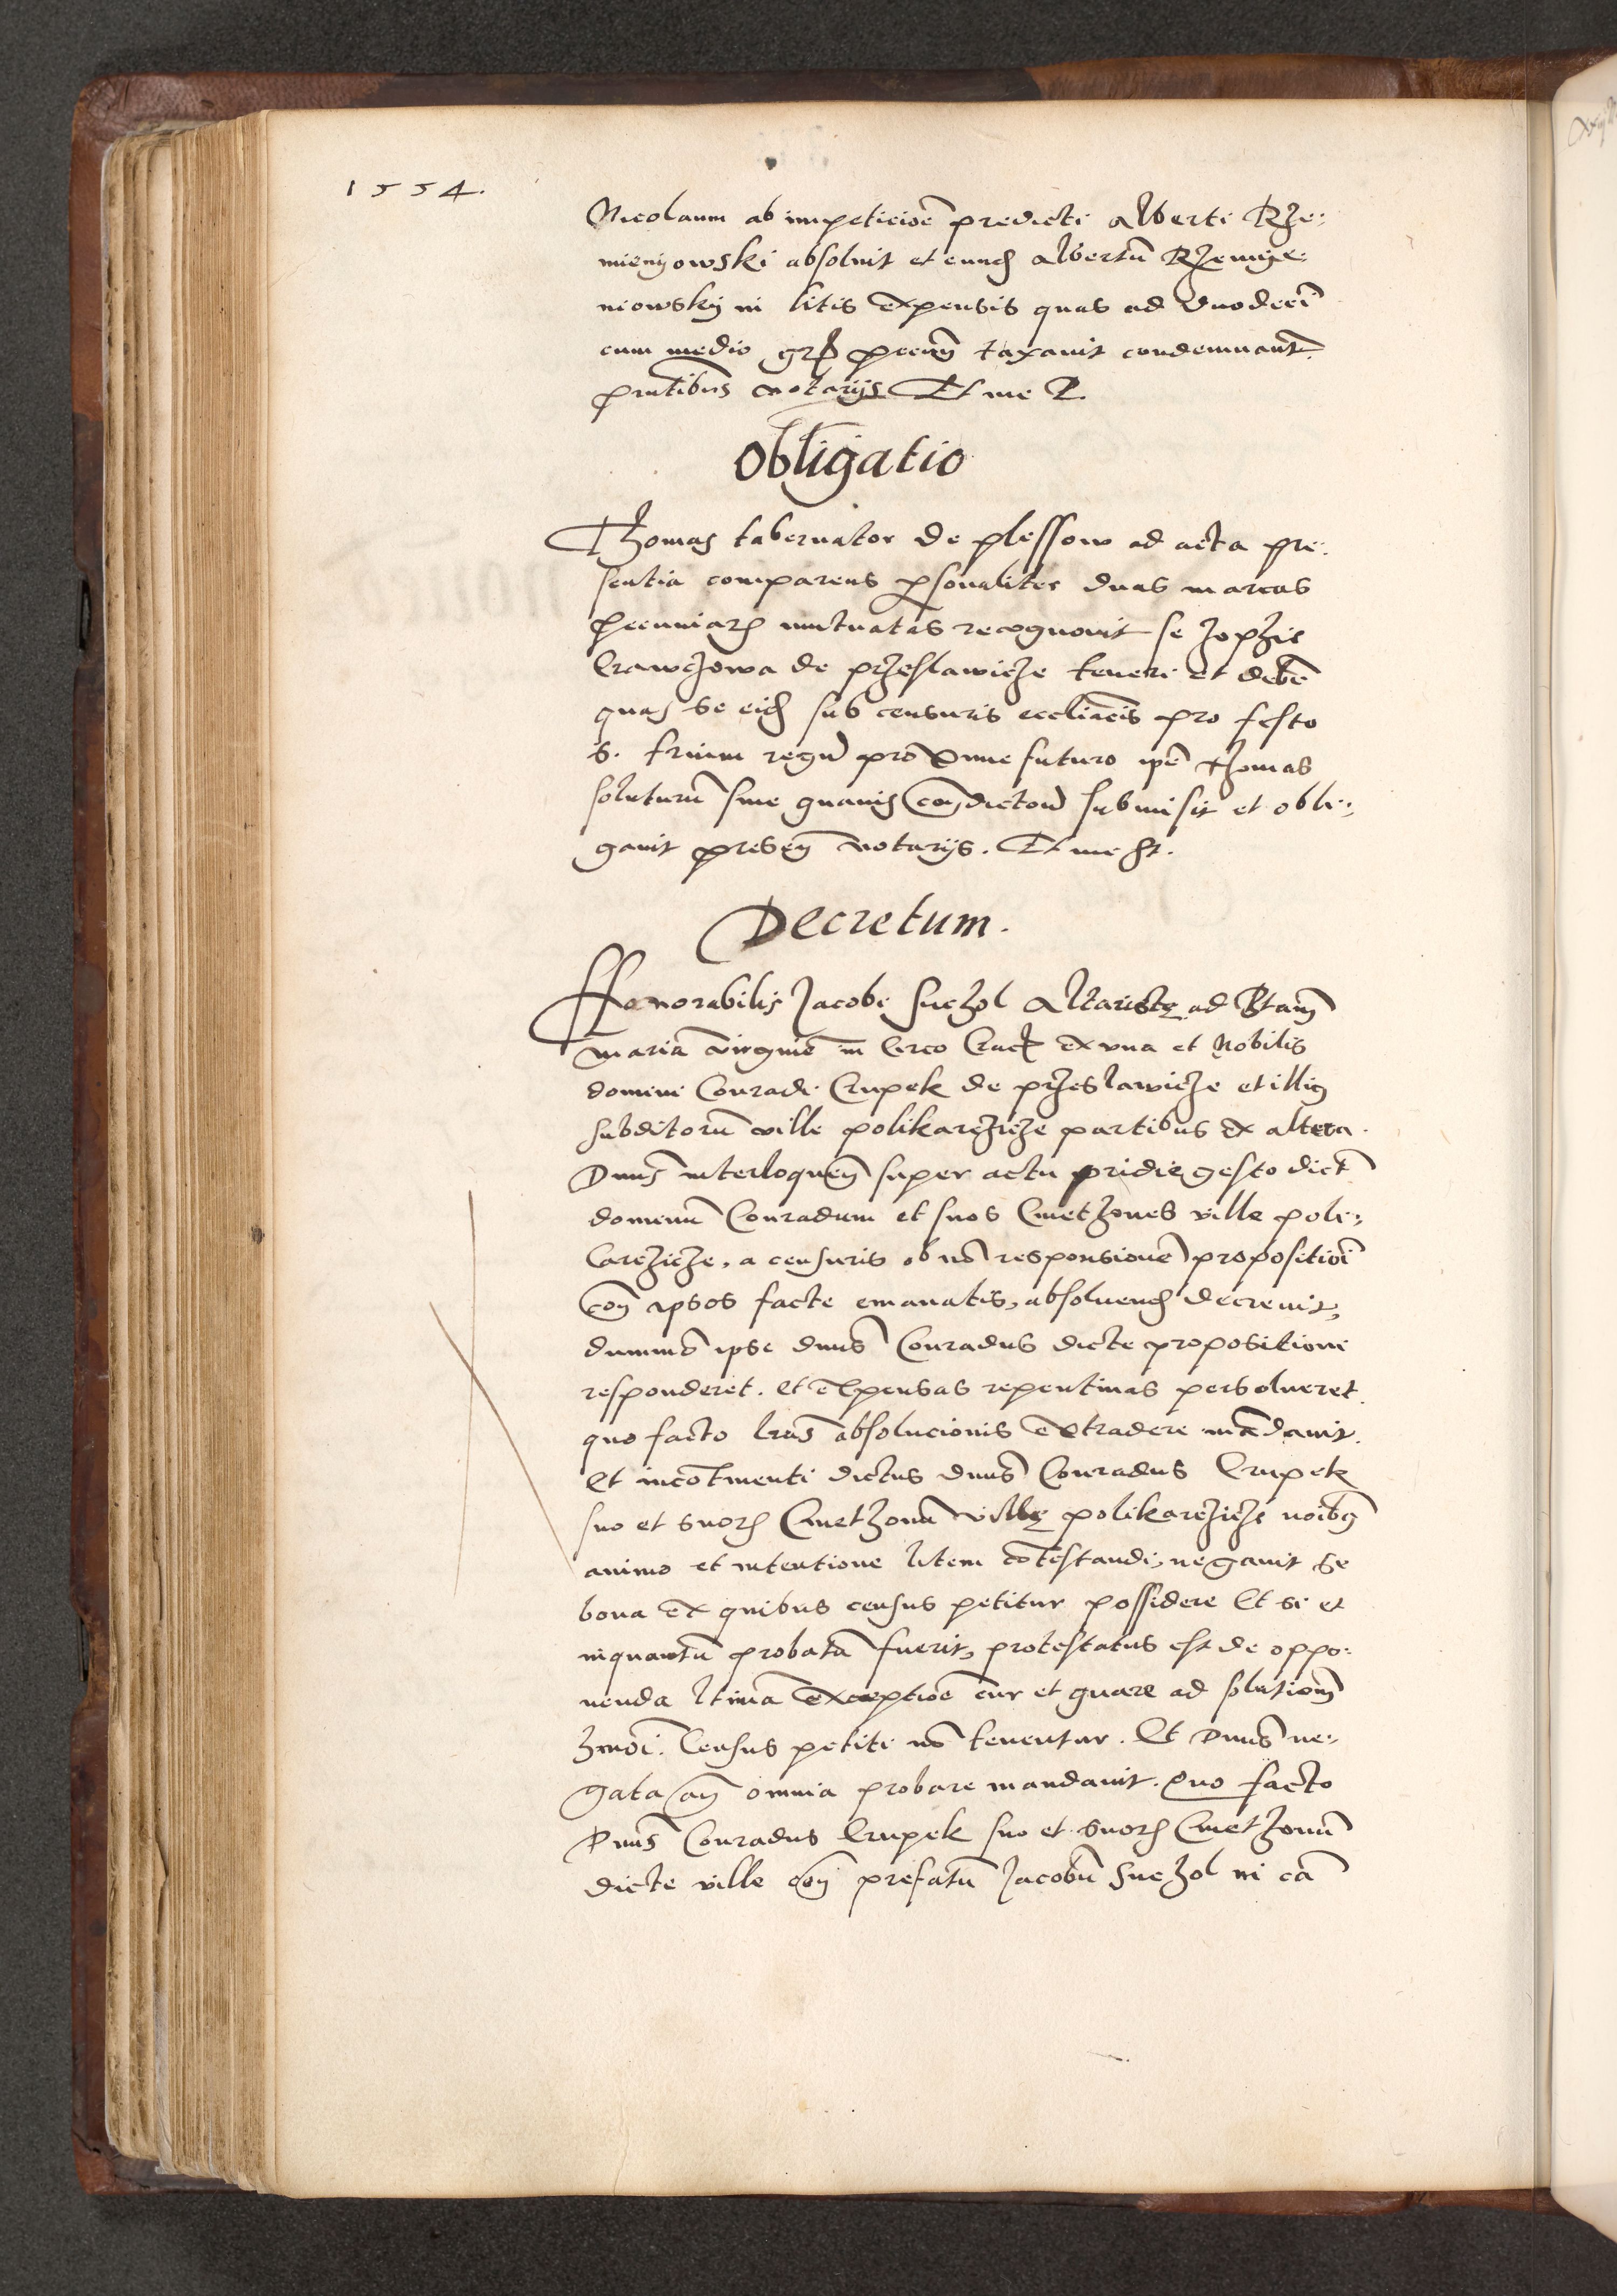 1554.
Nicolaum ab impeticioē predicti Alberti Rze:
mienyowski absoluit et eundȝ Albertū Rzemye:
niowsky in litis expensis quas ad duodeci
cum medio gr pecun taxauit condemnant
pntibus notarijs Et me
Obligatio
Thomas tabernator de plessow ad acta pre:
sentia comparens psonaliter duas marcas
pecuniar mutuatas recognouit se zophie
Crawczowa de przeslawicze teneri et debē
quas se eidȝ sub censuris eccliācis pro festo
S. trium regū proxime futuro ipē Thomas
soluturū sine quauis condictoū submisit et obli:
gauit presen notarijs. Et me St.
Decretum.
Honorabilis Jacobi Suchol Altariste ad Btam
Maria virginē in Circo Crac ex vna et Nobilis
domini Conradi Crupek de przeslawicze et illig
subditorū ville polikarczicze partibus ex altera.
Dnus interloquen super actu pridie gesto dict
dominū Conradum et suos Cmethones ville poli:
carczicze, a censuris ob nō responsionē propositioi
con ipsos facte emanatis, absoluendȝ decreuit,
dummō ipse dnus Conradus dicte propositioni
responderet. et expensas repentinas persolueret.
quo facto lras absolucionis extradere mādauit.
Et incōtinenti dictus dnus Conradus Crupek
suo et suor Cmethonū ville polikarczicze noibȝ
animo et intentione litem cōtestandi, negauit se
bona ex quibus census petitur possidere Et si et
inquantū probatū fuerit, protestatus est de oppo:
nenda ltima exceptioe cur et quare ad solutionem
hmōi. Census petiti nō tenentur. Et Dnus ne:
gata an omnia probare mandauit. Quo facto
Dnus Conradus Crupek suo et suor Cmethonū
dicte ville con prefatū Jacobū Suchol in cā